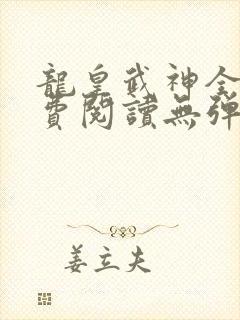 龍皇武神全
費閱讀無彈
姜立夫